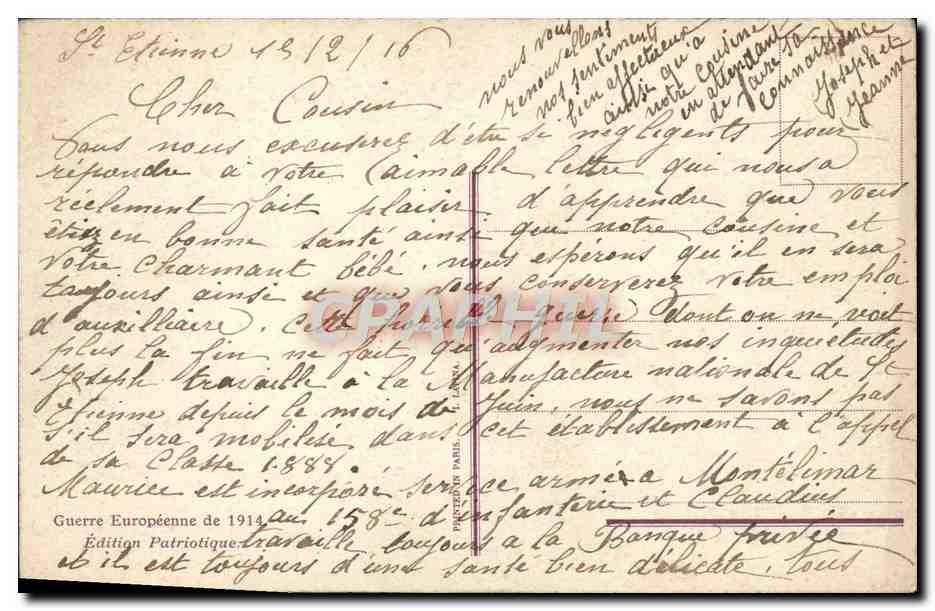 St Etienne 12/2/16
Cher Cousin
Vous nous excuserez d'être si négligents pour
répondre à votre aimable lettre qui nous a
réelement fait plaisir d'apprendre que vous
étiez en bonne santé ainsi que notre cousine et
votre charmant bébé, nous espérons qu'il en sera
toujours ainsi et que vous conserverez votre emploi
d'auxilliaire. Cette horrible guerre dont on ne voit
plus la fin ne fait qu'augmenter nos inquietudes
Joseph travaille à la Manufacture nationale de St
Etienne depuis le mois de Juin, nous ne savons pas
s'il sera mobilisé dans cet établissement à l'appel
de sa classe 1888.
Maurice est incorporé service armé a Montélimar
au 158e d'infanterie et Claudius
travaille toujours a la Banque privée
et il est toujours d'une santé bien délicate, tous
nous vous
renouvellons
nos sentiments
bien affectueux
ainsi qu'a
notre cousine
en attendant
de faire sa
connaissance
Joseph et
Jeanne
Guerre Européenne de 1914
Édition Patriotique
PRINTED IN PARIS.
CPAPHIL